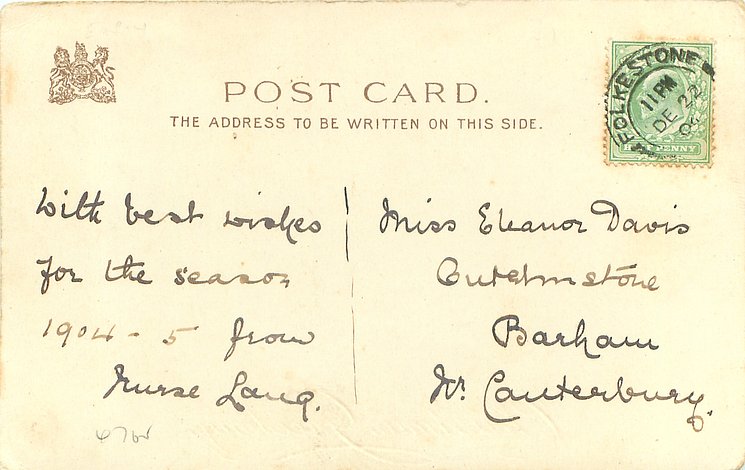 POST CARD.
THE ADDRESS TO BE WRITTEN ON THIS SIDE.
FOLKESTONE
11 PM
DE 22
04
HALF PENNY
With best wishes
for the season
1904 - 5 from
Nurse Lang.
Miss Eleanor Davis
Barham
Nr. Canterbury.